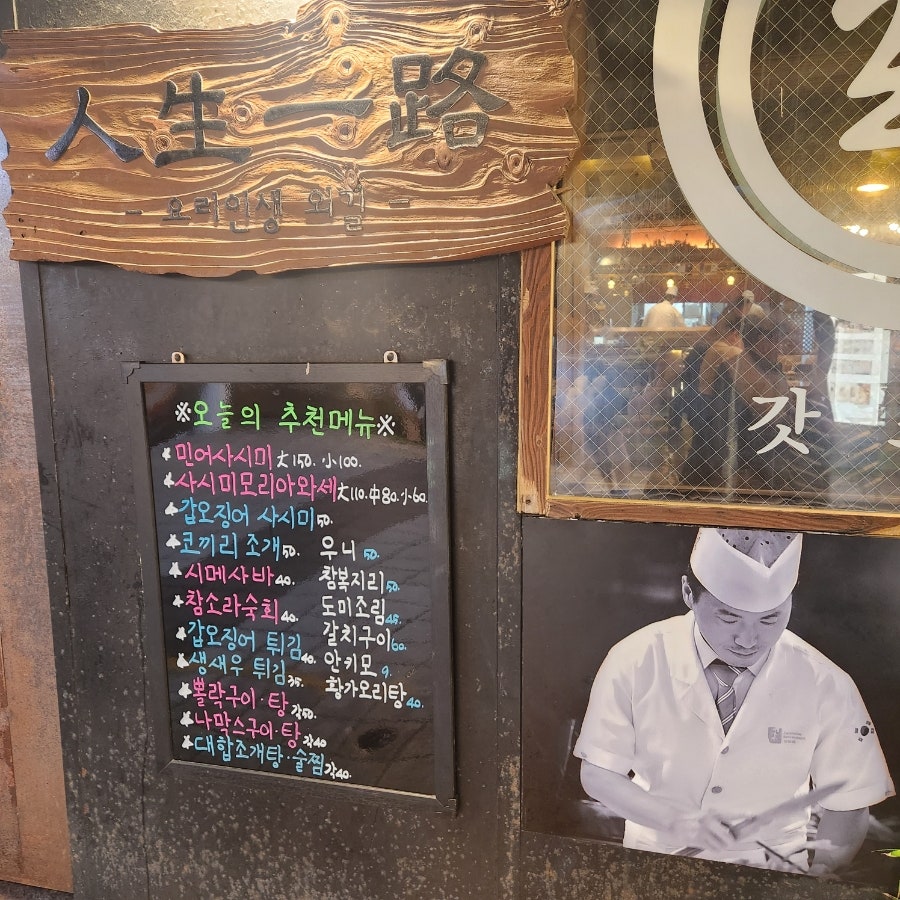 人生一路
- 요리인생 외길 -
※오늘의 추천메뉴※
민어사시미 大150. 小100.
사시미모리아와세 大110. 中80. 小60.
갑오징어 사시미 50.
코끼리 조개 50.
시메사바 40.
참소라숙회 40.
갑오징어 튀김 40.
생새우 튀김 35.
뽈락구이·탕 각50.
나막스구이·탕 각40
대합조개탕·술찜 각40.
우니 50.
참복지리 50.
도미조림 45.
갈치구이 60.
안키모 9.
황가오리탕 40.
갓